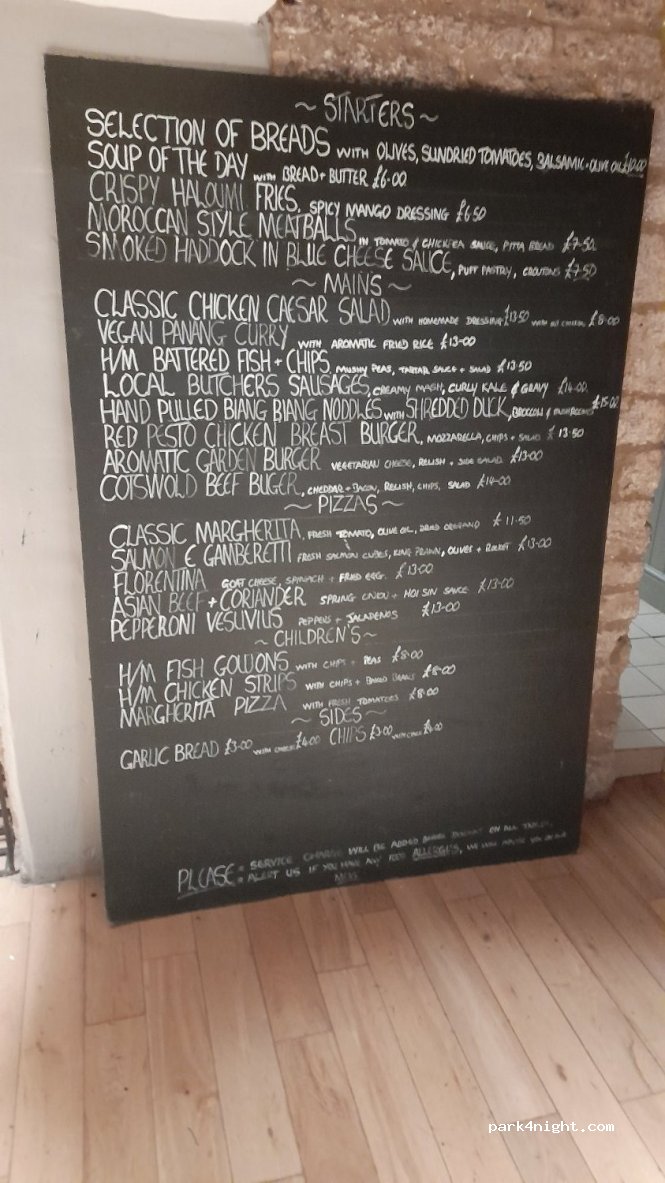 ~ STARTERS ~
SELECTION OF BREADS WITH OLIVES, SUNDRIED TOMATOES, BALSAMIC + OLIVE OIL £10.00
SOUP OF THE DAY WITH BREAD + BUTTER £6.00
CRISPY HALOUMI FRIES, SPICY MANGO DRESSING £6.50
MOROCCAN STYLE MEATBALLS IN TOMATO & CHICKPEA SAUCE, PITTA BREAD £7.50
SMOKED HADDOCK IN BLUE CHEESE SAUCE, PUFF PASTRY, CROUTONS £7.50
~ MAINS ~
CLASSIC CHICKEN CAESAR SALAD WITH HOMEMADE DRESSING £13.50 £8.00
VEGAN PANANG CURRY WITH AROMATIC FRIED RICE £13.00
H/M BATTERED FISH + CHIPS MUSHY PEAS, TARTAR SAUCE + SALAD £13.50
LOCAL BUTCHERS SAUSAGES, CREAMY MASH, CURLY KALE & GRAVY £14.00
HAND PULLED BIANG BIANG NODDLES WITH SHREDDED DUCK, BROCCOLI & MUSHROOMS £15.00
RED PESTO CHICKEN BREAST BURGER, MOZZARELLA, CHIPS + SALAD £13.50
AROMATIC GARDEN BURGER VEGETARIAN CHEESE, RELISH + SIDE SALAD £13.00
COTSWOLD BEEF BUGER, CHEDDAR + BACON, RELISH, CHIPS, SALAD £14.00
~ PIZZAS ~
CLASSIC MARGHERITA, FRESH TOMATO, OLIVE OIL, DRIED OREGANO £11.50
SALMON E GAMBERETTI FRESH SALMON CUBES, KING PRAWN, OLIVES + ROCKET £13.00
FLORENTINA GOAT CHEESE, SPINACH + FRIED EGG. £13.00
ASIAN BEEF + CORIANDER SPRING ONION + HOI SIN SAUCE £13.00
PEPPERONI VESUVIUS PEPPERS + JALAPENOS £13.00
~ CHILDREN'S ~
H/M FISH GOUJONS WITH CHIPS + PEAS £8.00
H/M CHICKEN STRIPS WITH CHIPS + BAKED BEANS £8.00
MARGHERITA PIZZA WITH FRESH TOMATOES £8.00
~ SIDES ~
GARLIC BREAD £3.00 WITH CHEESE £4.00 CHIPS £3.00 WITH CHEESE £4.00
PLEASE = SERVICE CHARGE WILL BE ADDED ON ALL TABLES.
= ALERT US IF YOU HAVE ANY FOOD ALLERGIES, WE
MENU
park4night.com